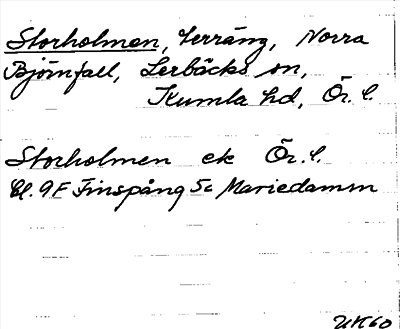 Storholmen, terräng, Norra
Björnfall, Lerbäcks sn,
Kumla hd, Ör. l.
Storholmen ek Ör. l.
Bl. 9F Finspång 5c Mariedamm
UK60